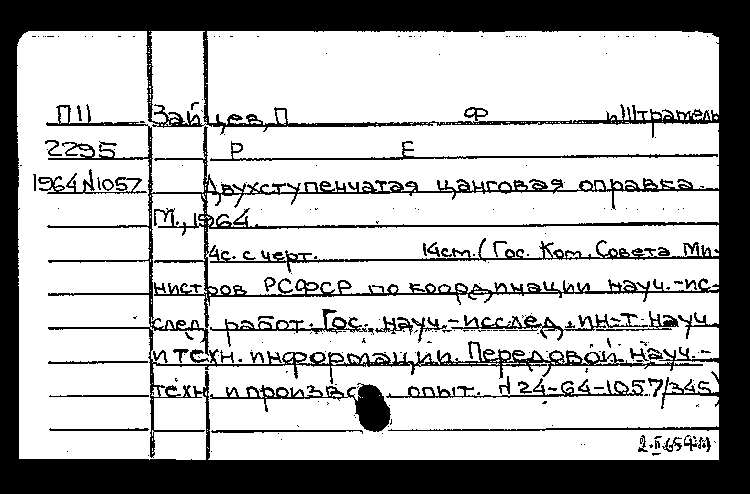 П11 Зайцев, П Ф и Штратель
2295 Р Е
1964 N1057 Двухступенчатая цанговая оправка
М., 1964.
4с. с черт. 14см. (Гос. Ком. Совета Ми-
нистров РСФСР по координации науч.-ис-
след. работ. Гос. науч.-исслед. ин-т науч.
и техн. информации. Передовой науч.-
техн. и произв опыт. N 24-64-1057/345)